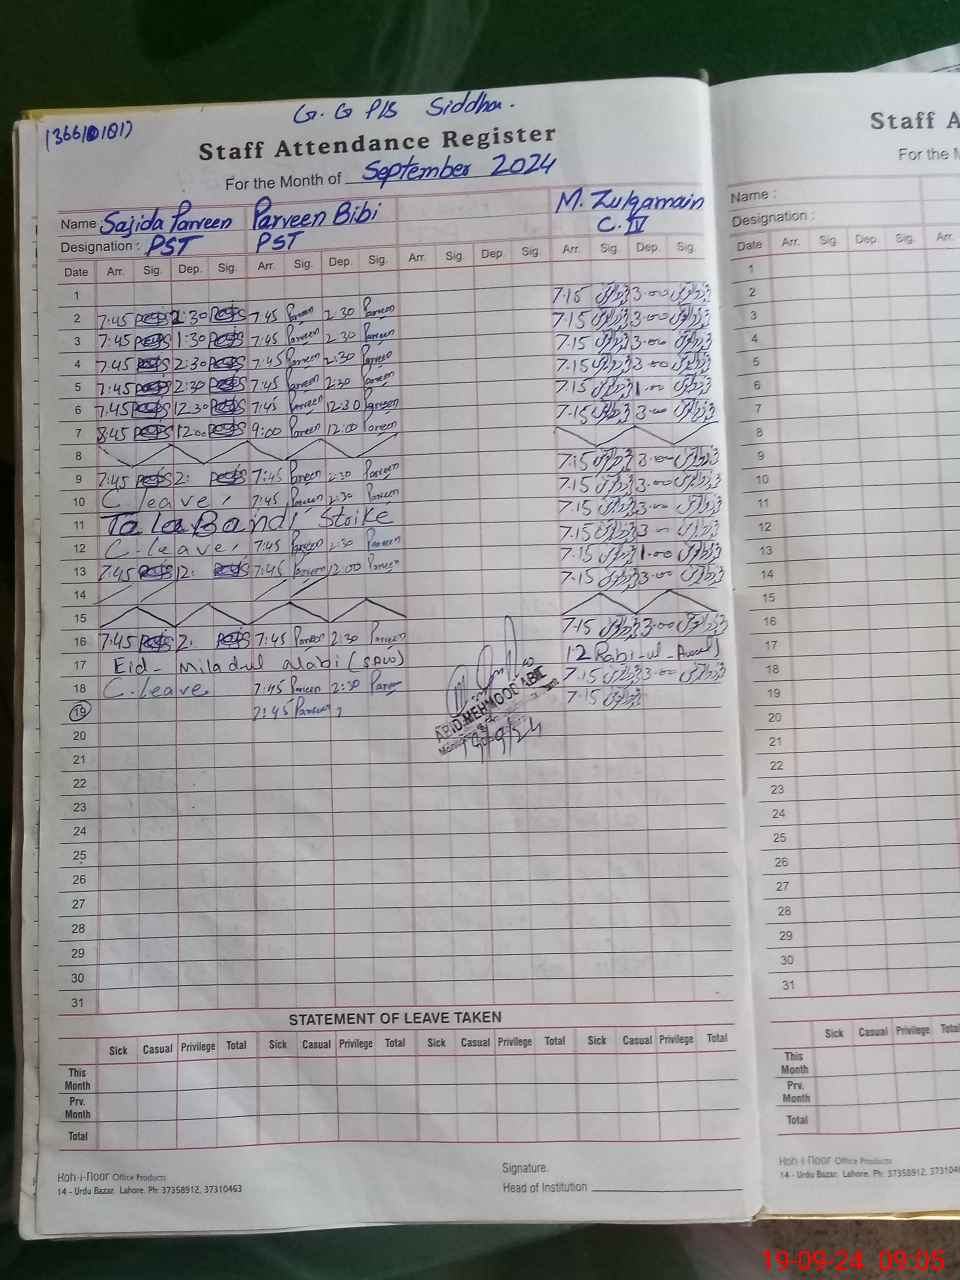 G. G P/S Siddhu.
Staff Attendance Register
For the Month of September 2024
Name Sajida Parveen Parveen Bibi M. Zulqarnain
Designation : PST PST C. IV
Date Arr. Sig. Dep. Sig. Arr. Sig. Dep. Sig. Arr. Sig. Dep. Sig. Arr. Sig. Dep. Sig.
1
2 7:45 2:30 7:45 Parveen 2:30 Parveen 7:15 3:00
3 7:45 1:30 7:45 Parveen 2:30 Parveen 7:15 3:00
4 7:45 2:30 7:45 Parveen 2:30 Parveen 7:15 3:00
5 7:45 2:30 7:45 Parveen 2:30 Parveen 7:15 3:00
6 7:45 12:30 7:45 Parveen 12:30 Parveen 7:15 1:00
7 8:45 12:00 9:00 Parveen 12:00 Parveen 7:15 3:00
8
9 7:45 2: 7:45 Parveen 2:30 Parveen 7:15 3:00
10 C leave, 7:45 Parveen 2:30 Parveen 7:15 3:00
11 Tala Bandi Strike 7:15 3:00
12 C-leave, 7:45 Parveen 2:30 Parveen 7:15 3:00
13 7:45 12: 7:45 Parveen 12:00 Parveen 7:15 1:00
14 7:15 3:00
15
16 7:45 2: 7:45 Parveen 2:30 Parveen 7:15 3:00
17 Eid- Miladul alabi (SAW) 12 Rabi-ul-Awwal
18 C.leave. 7:45 Parveen 2:30 Parveen 7:15 3:00
19 7:45 Parveen 7:15
ABID MEHMOOD
19/9/24
20
21
22
23
24
25
26
27
28
29
30
31
STATEMENT OF LEAVE TAKEN
Sick Casual Privilege Total Sick Casual Privilege Total Sick Casual Privilege Total Sick Casual Privilege Total
This Month
Prv. Month
Total
Koh-i-Noor Office Products
14 - Urdu Bazar, Lahore. Ph: 37358912, 37310463
Signature.
Head of Institution
Staff A
For the M
Name :
Designation :
Date Arr. Sig. Dep. Sig. Arr.
1
2
3
4
5
6
7
8
9
10
11
12
13
14
15
16
17
18
19
20
21
22
23
24
25
26
27
28
29
30
31
Sick Casual Privilege Total
This Month
Prv. Month
Total
Koh-i-Noor Office Products
14 - Urdu Bazar, Lahore. Ph: 37358912, 373104
19-09-24 09:05